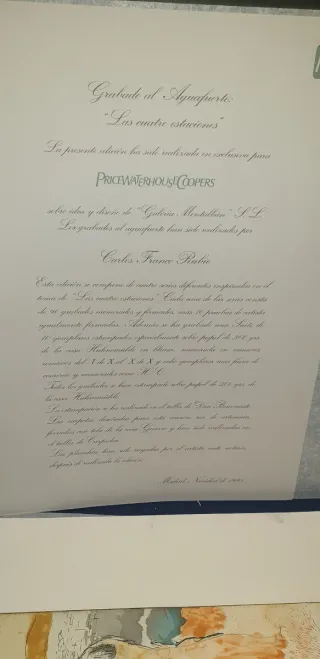 Grabado al Aguafuerte
"Las cuatro estaciones"
La presente edición ha sido realizada en exclusiva para
PRICEWATERHOUSECOOPERS
sobre idea y diseño de "Galería Montalbán" S.L.
Los grabados al aguafuerte han sido realizados por
Carlos Franco Rubio
Esta edición se compone de cuatro series diferentes inspiradas en el
tema de "Las cuatro estaciones". Cada una de las series consta
de grabados numerados y firmados, más pruebas de artista
igualmente firmadas. Además se ha grabado una Suite de
10 ejemplares estampados especialmente sobre papel de 300 grs.
de la casa
romanos del I de X al X de X y ocho ejemplares más fuera de
comercio y numerados como H. C.
Todos los grabados se han estampado sobre papel de 300 grs. de
la casa
La estampación se ha realizado en el taller de Dan Benveniste
Las carpetas diseñadas para esta ocasión son de
forradas con tela de la casa y han sido realizadas en
el taller de
Las planchas han sido rayadas por el artista ante notario,
después de realizada la edición.
Madrid, Noviembre de